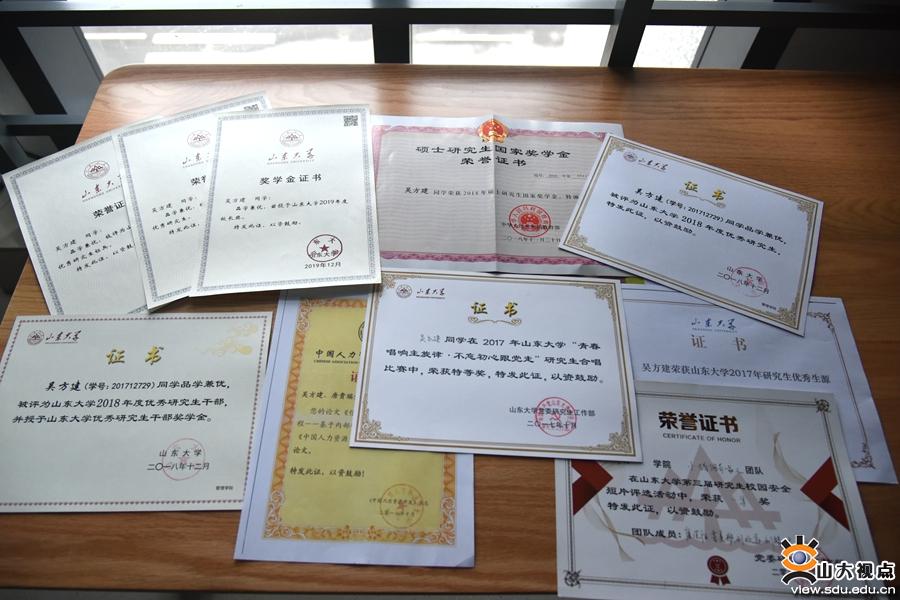 山东大学
荣誉证
吴方建 同学:
特发此证,以资鼓励
山东大学
荣
吴方建 同学:
特发此证,以资鼓
山东大学
奖学金证书
吴方建 同学:
品学兼优,兹授予山东大学2019年度
校长奖。
特发此证,以资鼓励。
山东大学
2019年12月
硕士研究生国家奖学金
荣誉证书
吴方建 同学荣获2018年硕士研究生国家奖学金,特颁
山东大学
证书
吴方建(学号:201712729)同学品学兼优,
被评为山东大学2018年度优秀研究生,
特发此证,以资鼓励。
山东大学
二〇一八年十二月
管理学院
山东大学
证书
吴方建(学号:201712729)同学品学兼优,
被评为山东大学2018年度优秀研究生干部,
并授予山东大学优秀研究生干部奖学金。
山东大学
二〇一八年十二月
管理学院
中国人力
CHINESE ASSOCIATION
吴方建、
您的论文《
程——基于内部
《中国人力资源
论文。
特发此证,以资鼓励!
山东大学
证书
吴方建 同学在2017年山东大学“青春
唱响主旋律·不忘初心跟党走”研究生合唱
比赛中,荣获特等奖,特发此证,以资鼓励。
山东大学党委研究生工作部
二〇一七年十月
山东大学
证书
吴方建荣获山东大学2017年研究生优秀生源
荣誉证书
CERTIFICATE OF HONOR
学院 团队
在山东大学第三届研究生校园安全
短片评选活动中,荣获 奖
特发此证,以资鼓励。
团队成员:
党委
山大视点
view.sdu.edu.cn